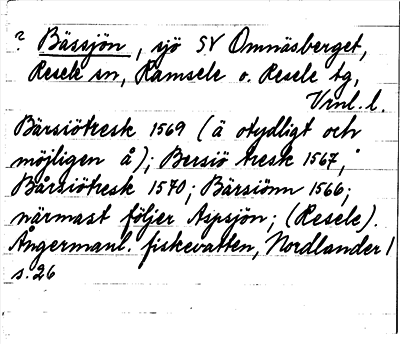 ? Bässjön, sjö SV Omnäsberget,
Resele sn, Ramsele o. Resele tg,
Vrnl. l.
Bärsiötresk 1569 (ä otydligt och
möjligen å); Bersiö tresk 1567;
Bårsiötresk 1570; Bärsiönn 1566;
närmast följer Aspsjön; (Resele).
Ångermanl. fiskevatten, Nordlander 1
s. 26